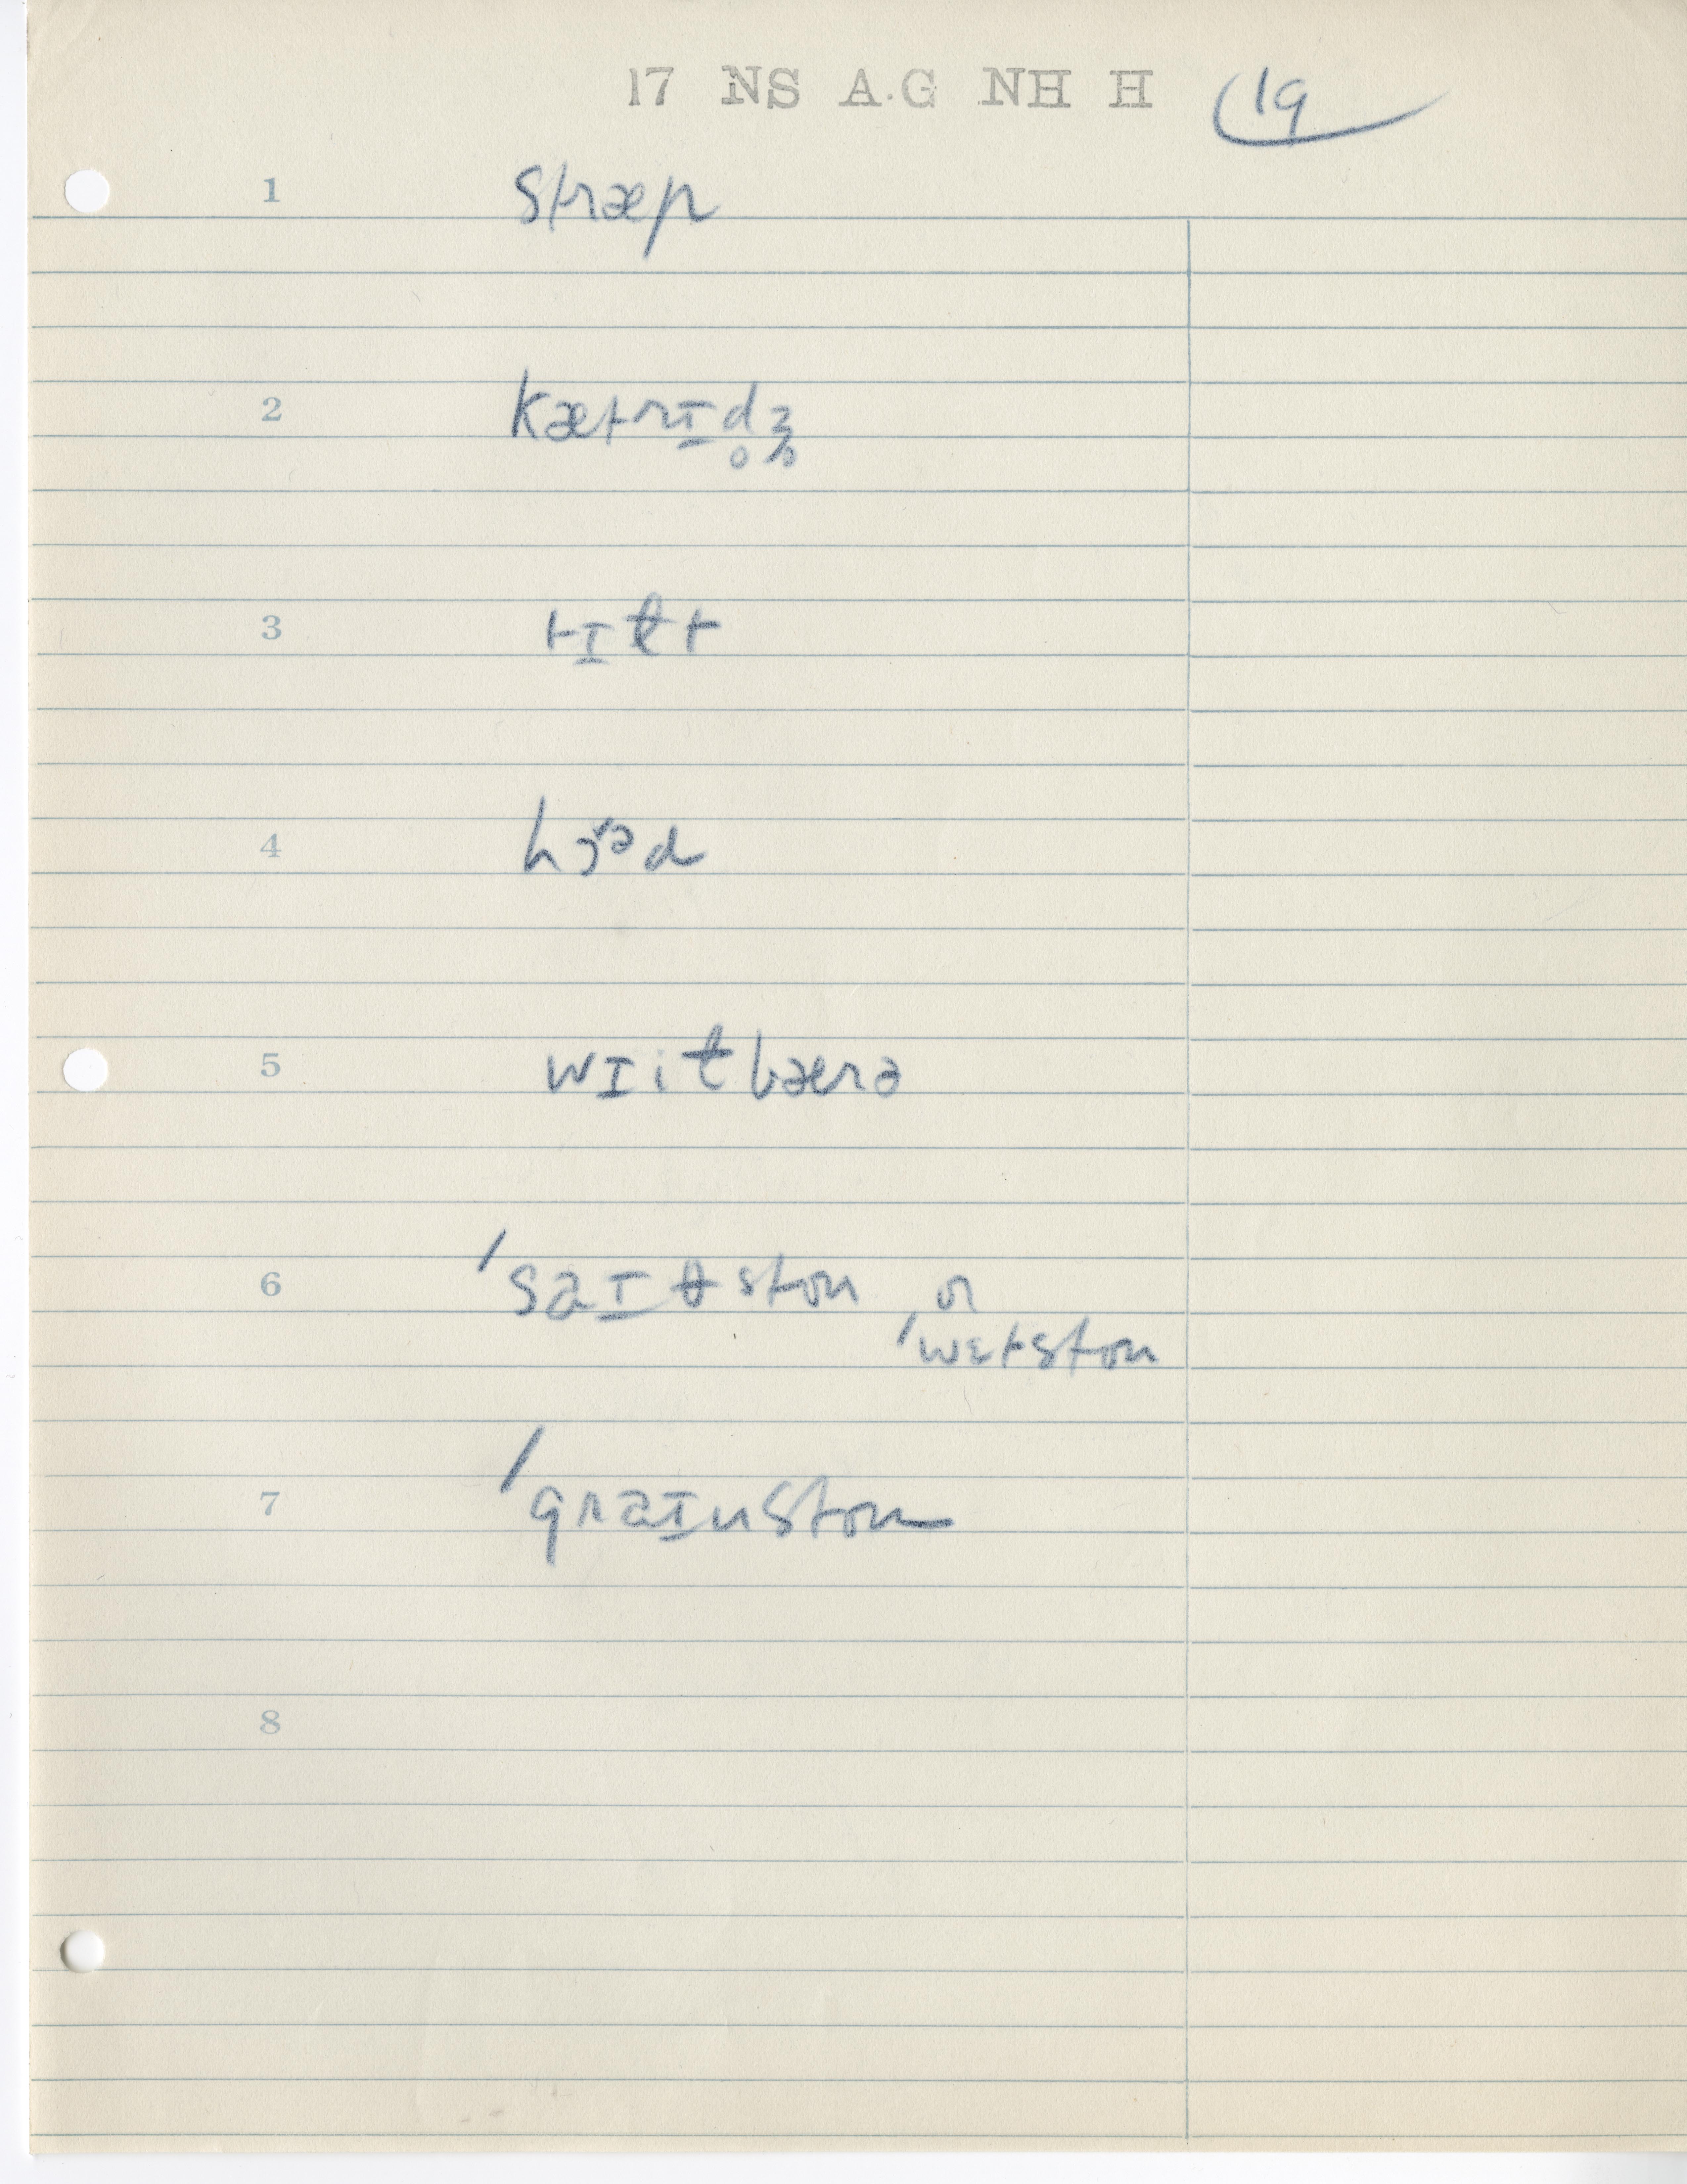 17 NS A.G NH H 19
1 stræp
2 kætrɪd̥ʒ̊
3 tɪɫt
4
5 wɪiɫbærə
6 'saɪðston or
'wɛtston
7 'graɪnston
8